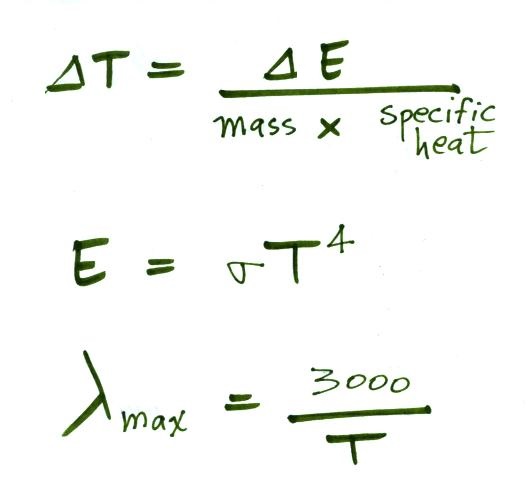 ΔT = ΔE / mass × specific heat
E = σT⁴
λmax = 3000 / T